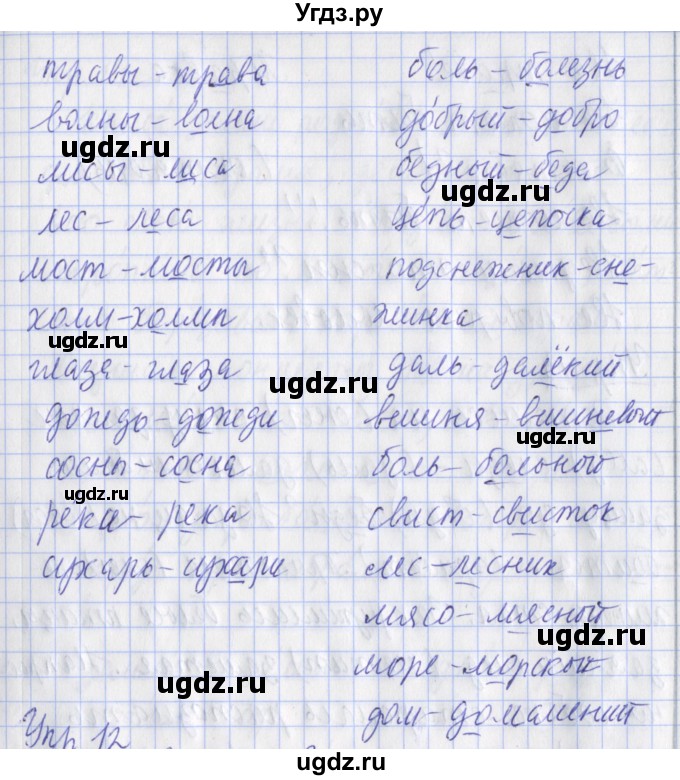 Угдз.ру
травы - трава
волны - волна
лисы - лиса
лес - леса
мост - мосты
холм - холмы
глаза - глаза
дождь - дожди
сосны - сосна
река - река
сухарь - сухари
Упр 12
боль - болезнь
добрый - добро
бедный - беда
цепь - цепочка
подснежник - сне-
жинка
даль - далёкий
вишня - вишневый
боль - больной
свист - свисток
лес - лесник
мясо - мясной
море - морской
дом - домашний
ugdz.ru
ugdz.ru
ugdz.ru
ugdz.ru
ugdz.ru
ugdz.ru
ugdz.ru
ugdz.ru
ugdz.ru
ugdz.ru
ugdz.ru
ugdz.ru